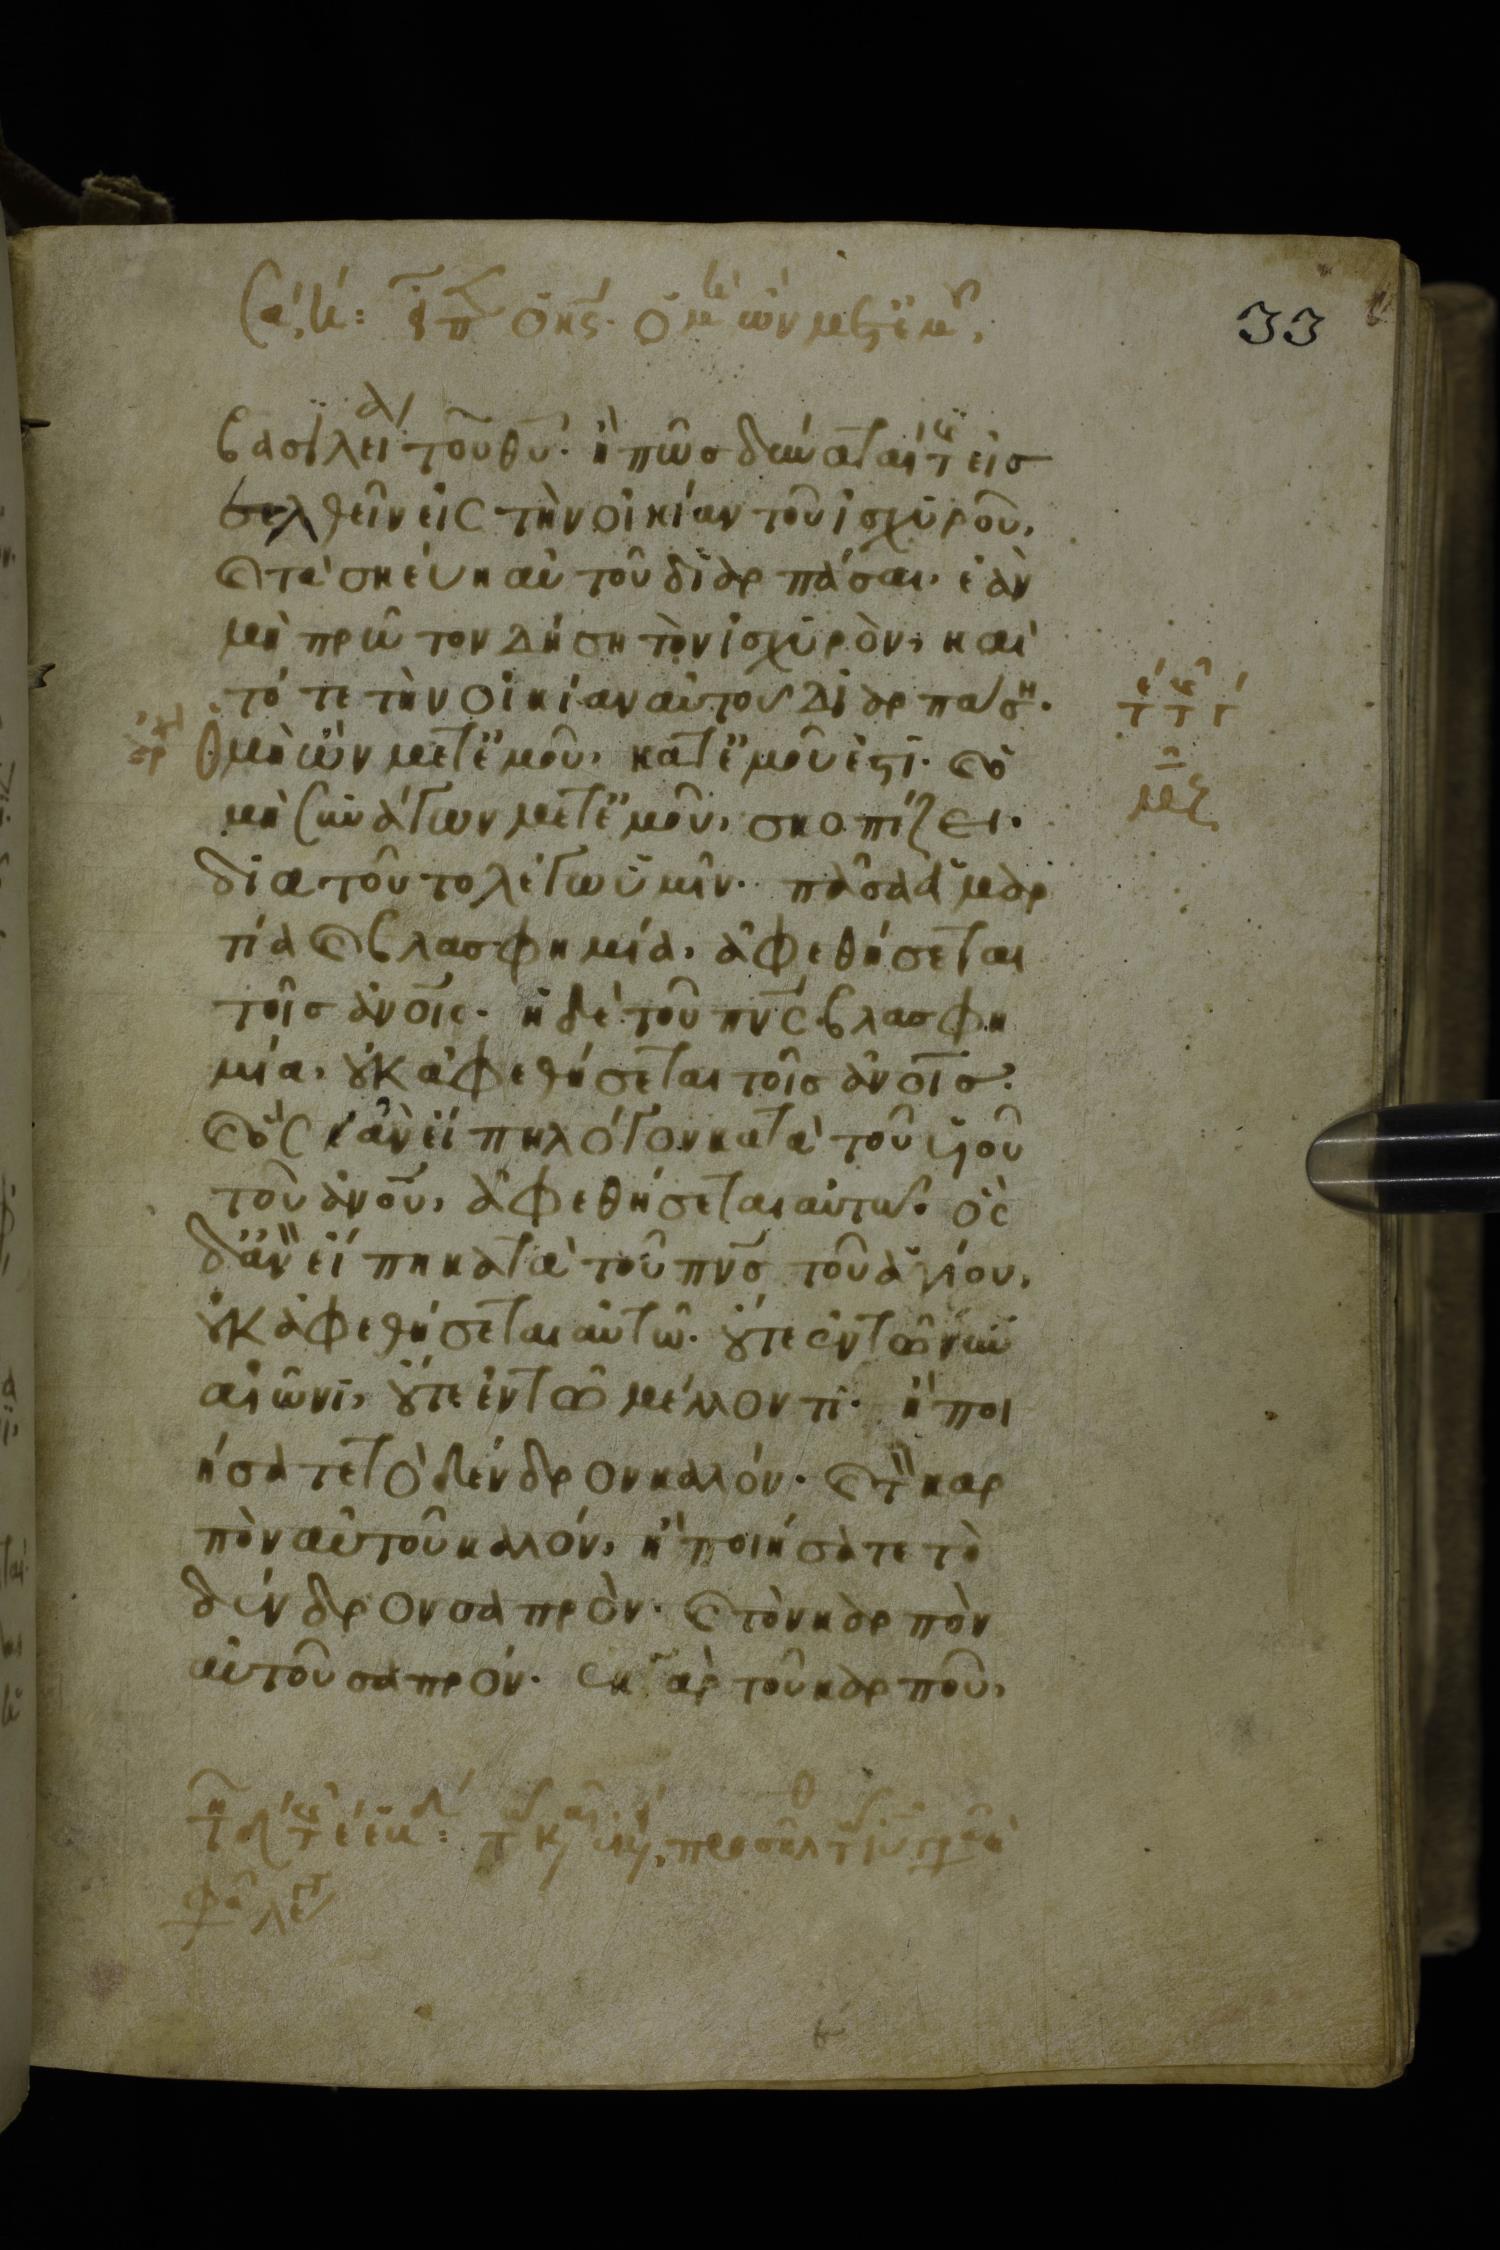 33
βασιλεία τοῦ θυ· ἢ πῶς δύναται τις εἰσ
ελθεῖν εἰς τὴν οἰκίαν τοῦ ἰσχυροῦ,
καὶ τὰ σκεύη αὐτοῦ διαρπάσαι, ἐὰν
μὴ πρῶτον δήση τὸν ἰσχυρὸν, καὶ
τότε τὴν οἰκίαν αὐτοῦ διαρπάση·
Ὁ μὴ ὢν μετ ἐμοῦ, κατ ἐμοῦ ἐστι· καὶ ὁ
μὴ συνάγων μετ ἐμοῦ, σκορπίζει·
διὰ τοῦτο λέγω ὑμῖν· πᾶσα ἁμαρ
τία καὶ βλασφημία, ἀφεθήσεται
τοῖς ἀνοις· ἡ δὲ τοῦ πνς βλασφη
μία, οὐκ ἀφεθήσεται τοῖς ἀνοις·
καὶ ὃς ἐὰν εἴπη λόγον κατὰ τοῦ υἱοῦ
τοῦ ἀνου, ἀφεθήσεται αὐτῶ· ὃς
δ ἂν εἴπη κατὰ τοῦ πνς τοῦ ἁγίου,
οὐκ ἀφεθήσεται αὐτῶ· οὔτε ἐν τῶ νῦν
αἰῶνι, οὔτε ἐν τῶ μέλλοντι· ἢ ποι
ήσατε τὸ δένδρον καλόν· καὶ τὸν καρ
πὸν αὐτοῦ καλόν, ἢ ποιήσατε τὸ
δένδρον σαπρὸν· καὶ τὸν καρπὸν
αὐτοῦ σαπρόν· ἐκ γὰρ τοῦ καρποῦ,